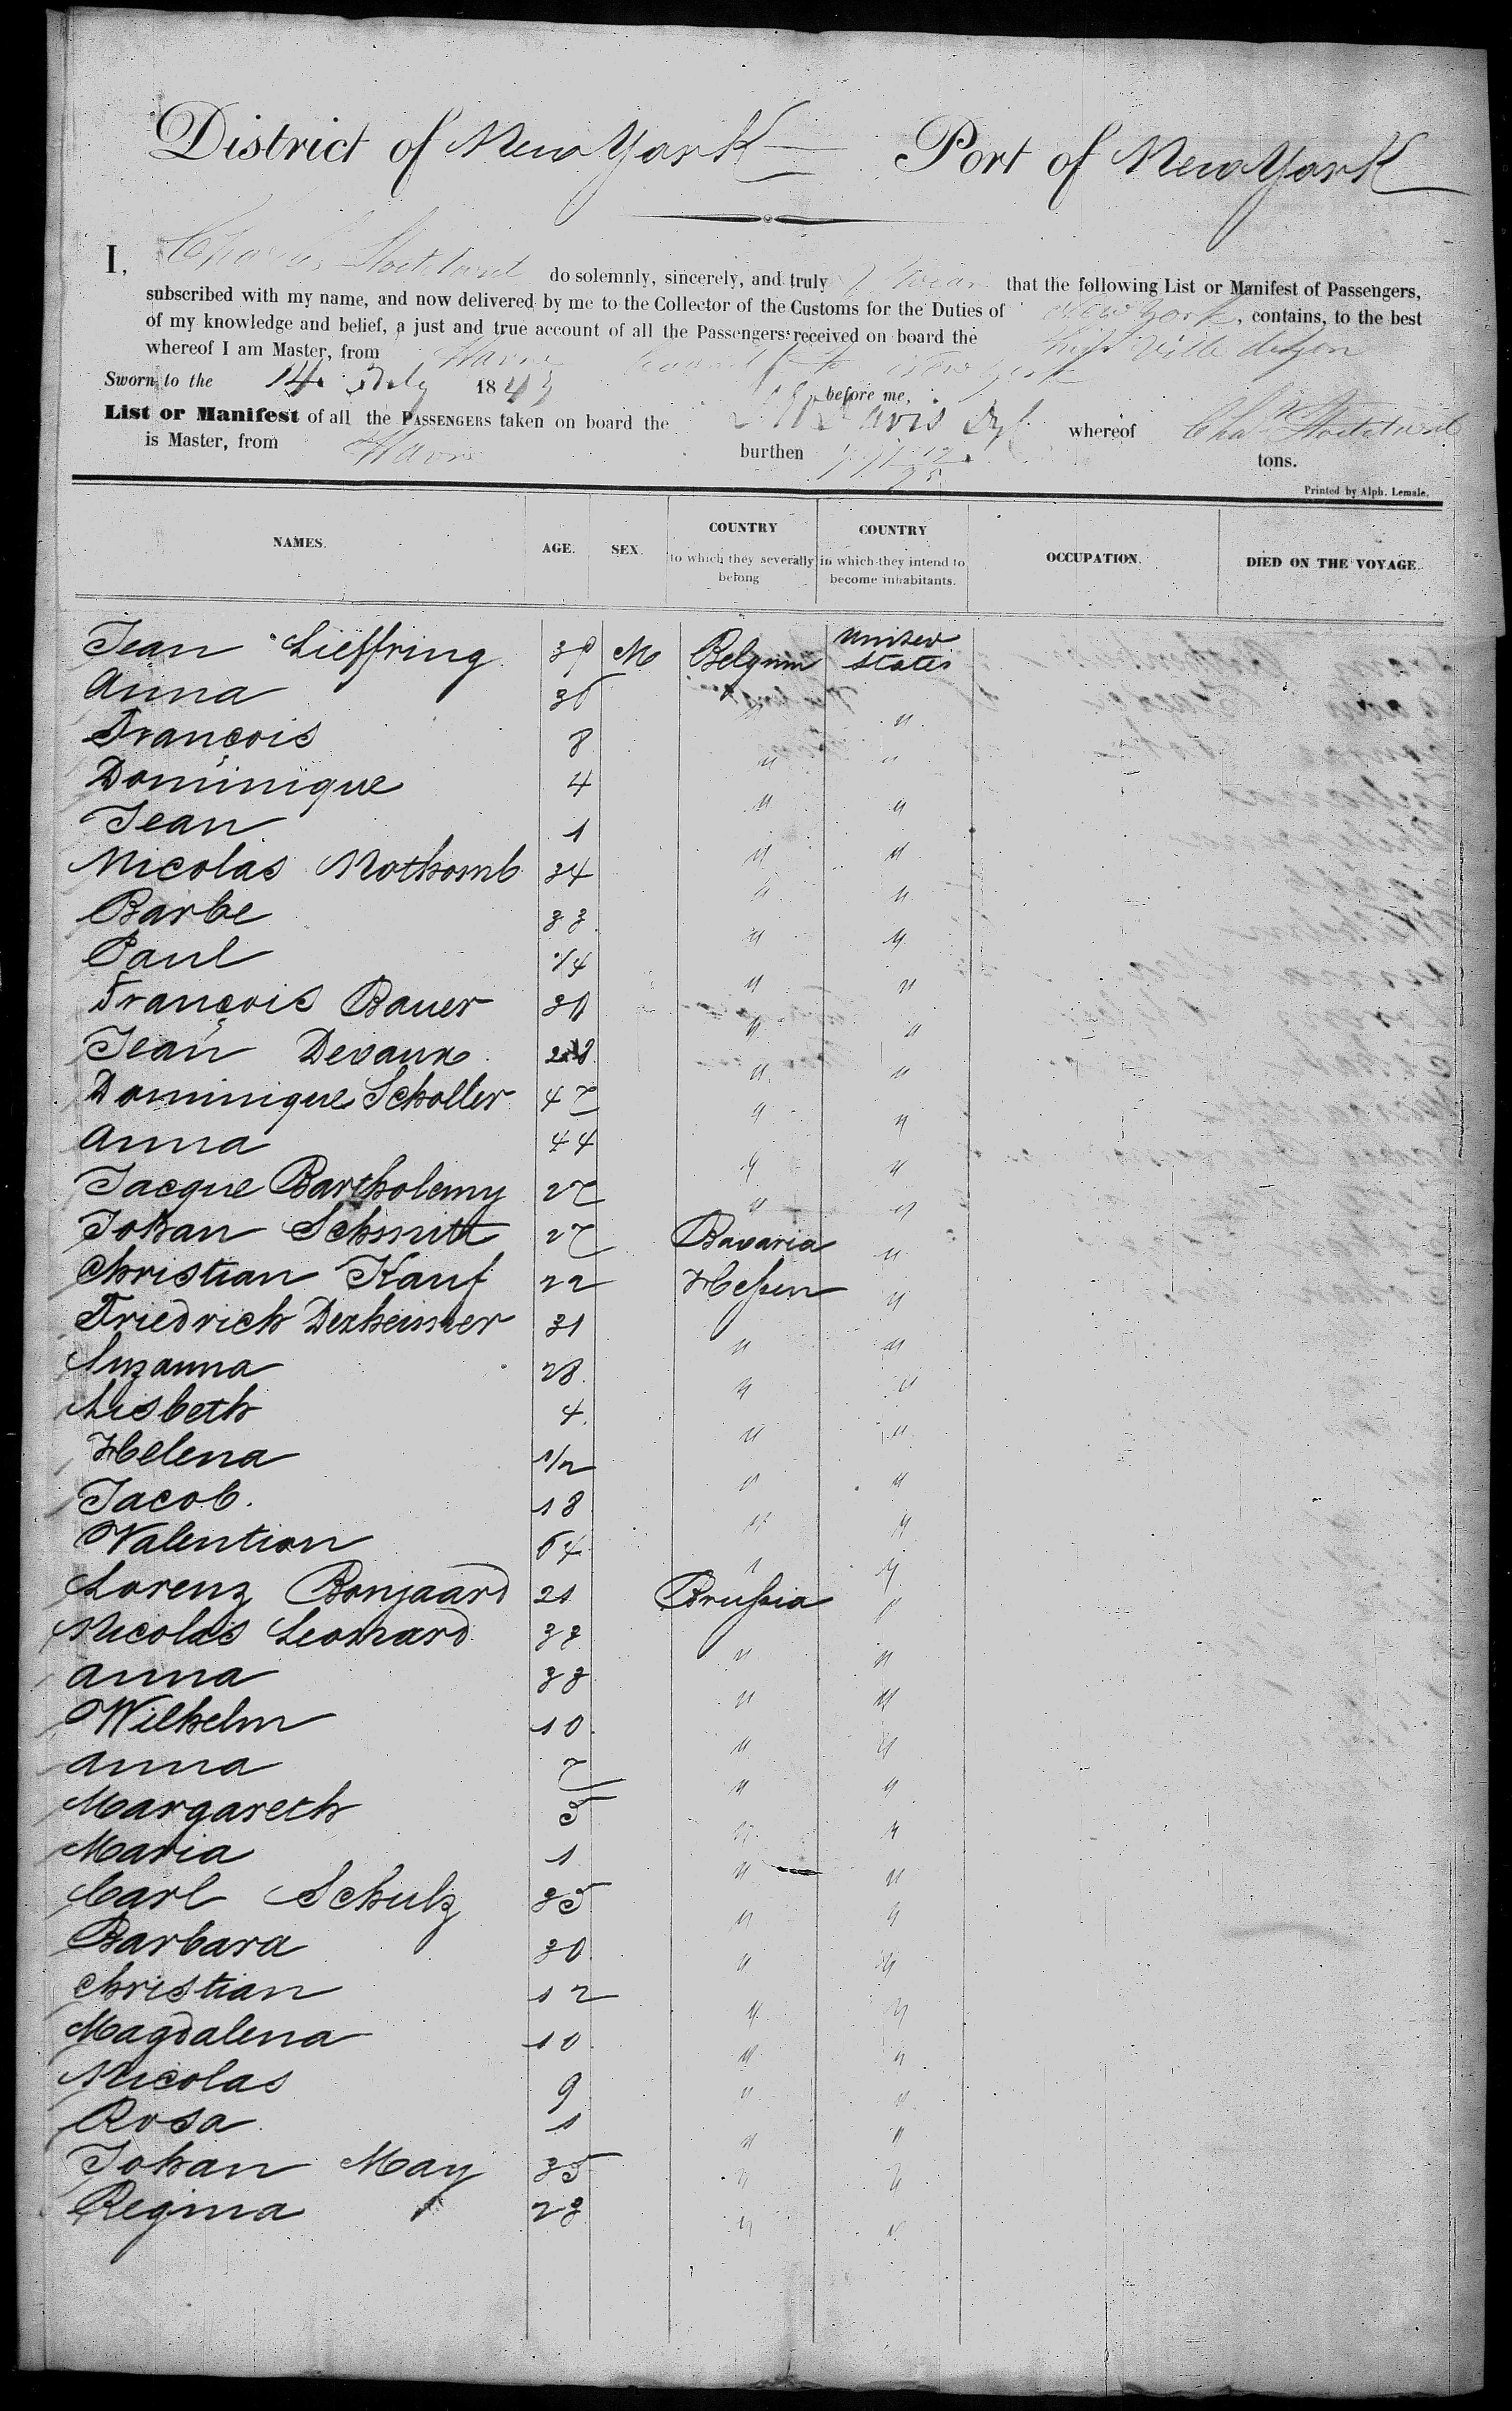 District of New York Port of New York
I, Charles Stoddard do solemnly, sincerely, and truly Swear that the following List or Manifest of Passengers,
subscribed with my name, and now delivered by me to the Collector of the Customs for the Duties of New York, contains, to the best
of my knowledge and belief, a just and true account of all the Passengers received on board the Ship Ville de Lyon
whereof I am Master, from Havre to New York
Sworn to the 14 July 184 before me,
List or Manifest of all the PASSENGERS taken on board the whereof Chas Stoddard
is Master, from Havre burthen tons.
Printed by Alph. Lemale.
NAMES. AGE. SEX. COUNTRY to which they severally belong COUNTRY in which they intend to become inhabitants. OCCUPATION. DIED ON THE VOYAGE.
Jean Lieffring M Belgium United States
Anna 36 " "
François 8 " "
Dominique 4 " "
Jean 1 " "
Nicolas Nothomb 34 " "
Barbe 33 " "
Paul 1/4 " "
François Bauer " "
Jean Devaux " "
Dominique Scholler 47 " "
Anna 44 " "
Jacque Bartholemy 27 " "
Johan Schmitt 27 Bavaria "
Christian Kauf 22 Hessen "
Friedrich Dexheimer 31 " "
Suzanna 28 " "
Lisbeth 4 " "
Helena 1/2 " "
Jacob 18 " "
Valention 64 " "
Lorenz Bonjaard 21 Prussia "
Nicolas Leonard 33 " "
Anna 33 " "
Wilhelm 10 " "
Anna 7 " "
Margareth 5 " "
Maria 1 " "
Carl Schulz 35 " "
Barbara 30 " "
Christian 12 " "
Magdalena 10 " "
Nicolas 9 " "
Rosa 1 " "
Johan May 35 " "
Regina 23 " "